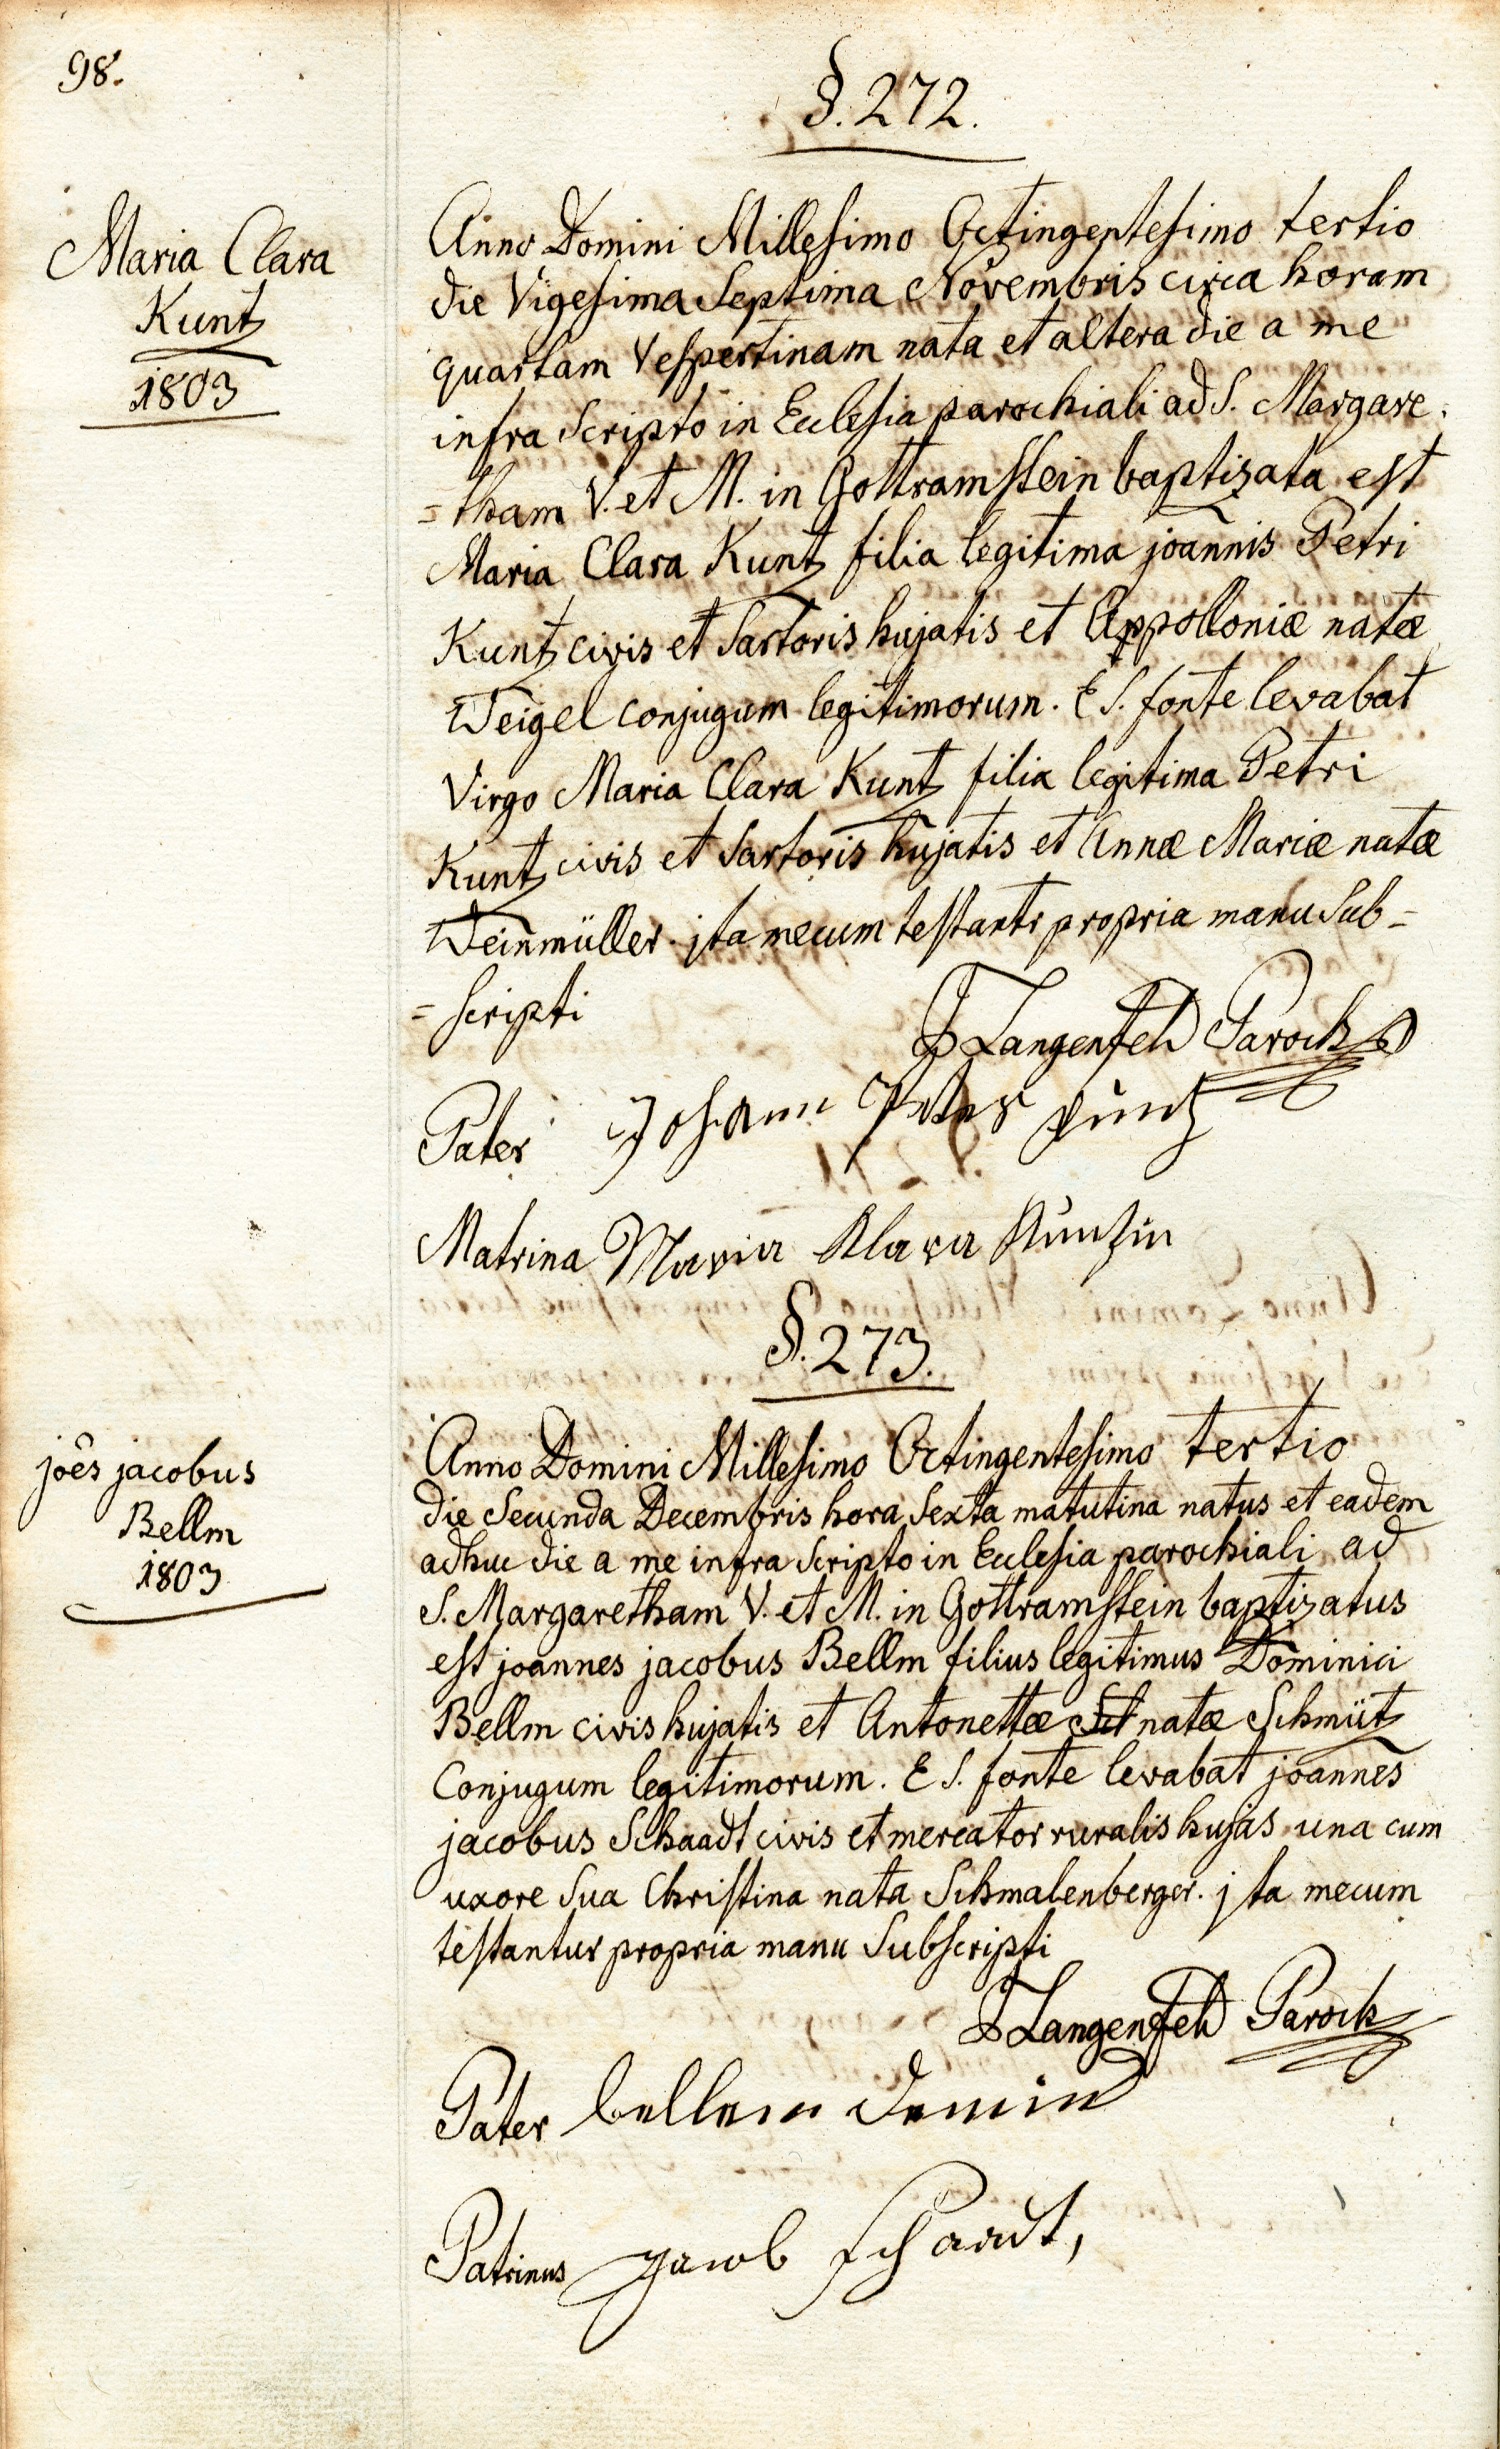 98.
§. 272.
Maria Clara
Kuntz
1803
Anno Domini Millesimo Octingentesimo tertio
die Vigesima Septima Novembris circa horam
quartam Vespertinam nata et altera die a me
infra Scripto in Ecclesia parochiali ad S. Margare=
=tham V. et M. in Gottramstein baptizata est
Maria Clara Kuntz filia legitima joannis Petri
Kuntz civis et Sartoris hujatis et Appolloniæ natæ
Weigel conjugum legitimorum. E S. fonte levabat
Virgo Maria Clara Kuntz filia legitima Petri
Kuntz civis et Sartoris hujatis et Annæ Mariæ natæ
Weinmüller. jta mecum testantr propria manu Sub=
=scripti
J Langenfeld Paroch
Pater Johann Peter Kuntz
Matrina Maria Klara Kuntzin
§. 273.
joês jacobus
Bellm
1803
Anno Domini Millesimo Octingentesimo tertio
die Secunda Decembris hora Sexta matutina natus et eadem
adhuc die a me infra Scripto in Ecclesia parochiali ad
S. Margaretham V. et M. in Gottramstein baptizatus
est joannes jacobus Bellm filius legitimus Dominici
Bellm civis hujatis et Antonettæ natæ Schmütz
Conjugum legitimorum. E S. fonte levabat joannes
jacobus Schaadt civis et mercator ruralis hujas una cum
uxore Sua Christina nata Schmalenberger. jta mecum
testantur propria manu Subscripti
J Langenfeld Paroch
Pater bellem
Patrinus Jacob schaadt,